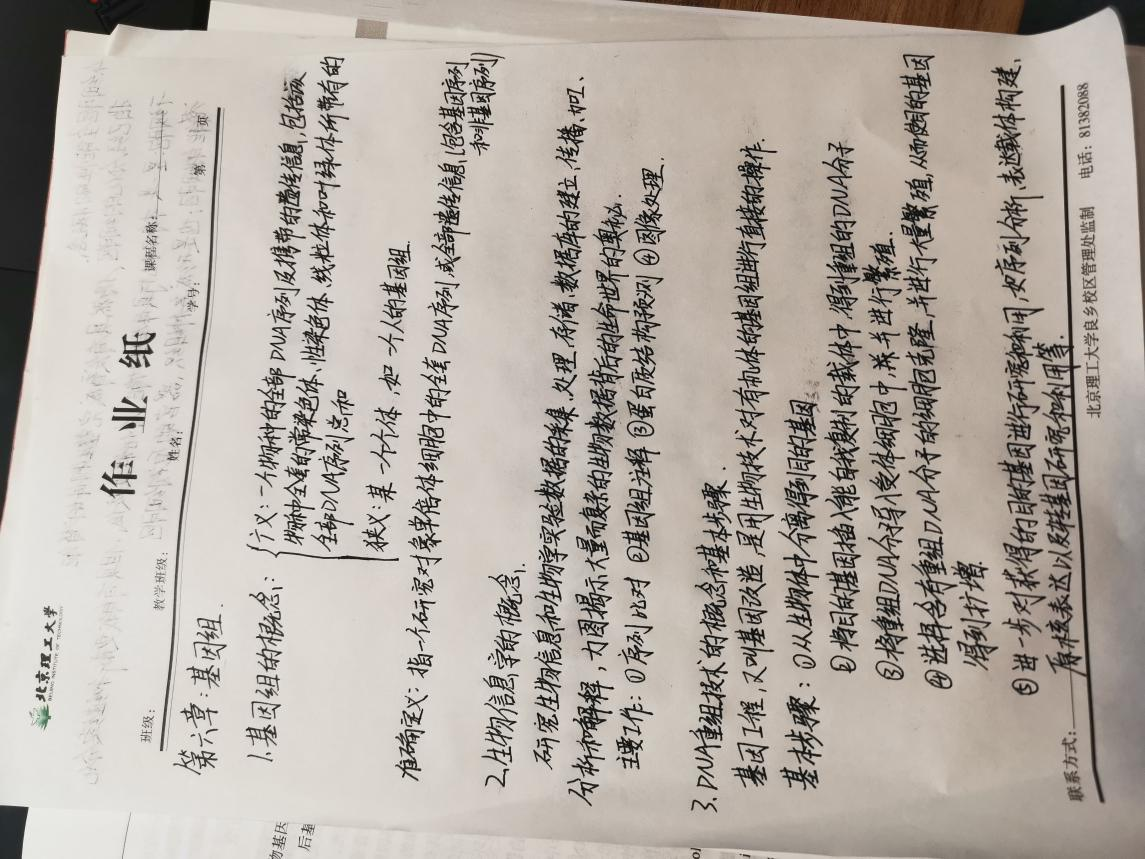 北京理工大学
BEIJING INSTITUTE OF TECHNOLOGY
作业纸
课程名称:
班级: 教学班级: 姓名: 学号: 第 页
第六章:基因组.
1.基因组的概念:
广义:一个物种的全部DNA序列及携带的遗传信息,包括该
物种全套的常染色体、性染色体、线粒体和叶绿体所带有的
全部DNA序列总和
狭义:某一个个体,如一个人的基因组.
准确定义:指一个研究对象单倍体细胞中的全套DNA序列,或全部遗传信息(包含基因序列
和非基因序列)
2.生物信息学的概念.
研究生物信息和生物学实验数据的采集,处理,存储,数据库的建立,传播,加工、
分析和解释,力图揭示大量而复杂的生物数据背后的生命世界的奥秘.
主要工作:①序列比对 ②基因组注释 ③蛋白质结构预测 ④图像处理.
3.DNA重组技术的概念和基本步骤
基因工程,又叫基因改造,是用生物技术对有机体的基因组进行直接的操作.
基本步骤:①从生物体中分离得到目的基因
②将目的基因插入能自我复制的载体中,得到重组的DNA分子
③将重组DNA分子导入受体细胞中,并进行繁殖.
④选择含有重组DNA分子的细胞克隆,并进行大量繁殖,从而使目的基因
得到扩增
⑤进一步对获得的目的基因进行研究和利用,如序列分析、表达载体构建、
原核表达以及转基因研究和利用等.
联系方式: 北京理工大学良乡校区管理处监制 电话:81382088